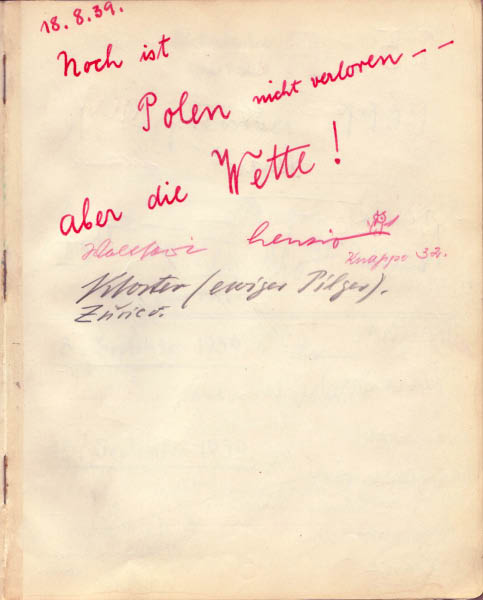 18.8.39.
Noch ist
Polen nicht verloren – –
aber die Wette!
Knappe 32.
Kloster (ewiger Pilger).
Zürich.